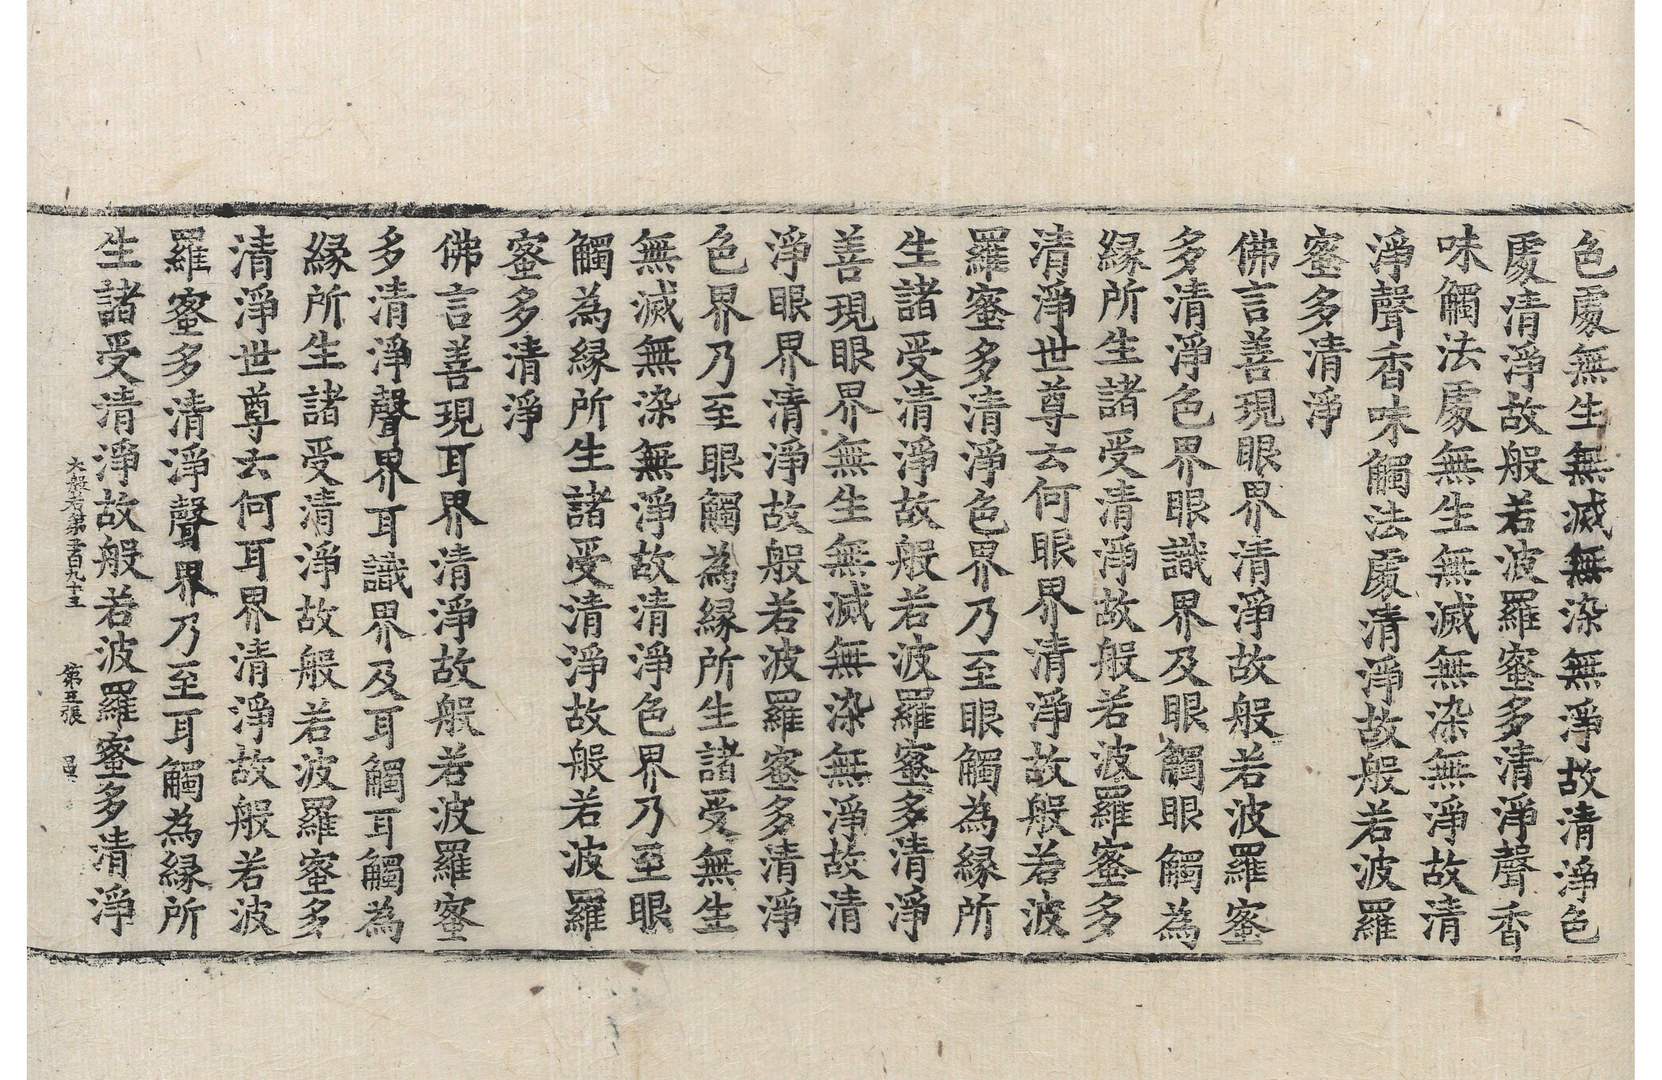 色處無生無滅無染無淨故清淨色
處清淨故般若波羅蜜多清淨聲香
味觸法處無生無滅無染無淨故清
淨聲香味觸法處清淨故般若波羅
蜜多清淨
佛言善現眼界清淨故般若波羅蜜
多清淨色界眼識界及眼觸眼觸為
緣所生諸受清淨故般若波羅蜜多
清淨世尊云何眼界清淨故般若波
羅蜜多清淨色界乃至眼觸為緣所
生諸受清淨故般若波羅蜜多清淨
善現眼界無生無滅無染無淨故清
淨眼界清淨故般若波羅蜜多清淨
色界乃至眼觸為緣所生諸受無生
無滅無染無淨故清淨色界乃至眼
觸為緣所生諸受清淨故般若波羅
蜜多清淨
佛言善現耳界清淨故般若波羅蜜
多清淨聲界耳識界及耳觸耳觸為
緣所生諸受清淨故般若波羅蜜多
清淨世尊云何耳界清淨故般若波
羅蜜多清淨聲界乃至耳觸為緣所
生諸受清淨故般若波羅蜜多清淨
大般若第二百九十五 第五張